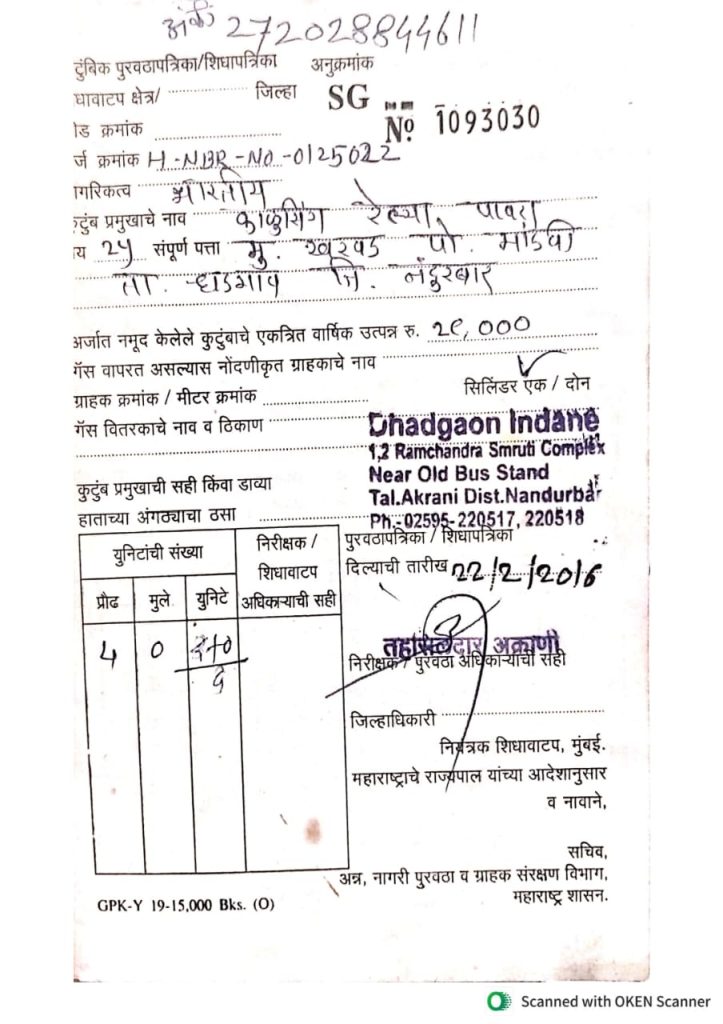 अंकी 272028844611
टुंबिक पुरवठापत्रिका/शिधापत्रिका अनुक्रमांक
धावाटप क्षेत्र/ जिल्हा SG
Nº 1093030
ोड क्रमांक
र्ज क्रमांक H-NBR-NO-0125022
गरिकत्व भारतीय
टुंब प्रमुखाचे नाव काळुसिंग रेल्या पावरा
य 24 संपूर्ण पत्ता मु. खरवड पो. मांडवी
ता. धडगाव जि. नंदुरबार
अर्जात नमूद केलेले कुटुंबाचे एकत्रित वार्षिक उत्पन्न रु. 29,000
गॅस वापरत असल्यास नोंदणीकृत ग्राहकाचे नाव
सिलिंडर एक / दोन
ग्राहक क्रमांक / मीटर क्रमांक
गॅस वितरकाचे नाव व ठिकाण
Dhadgaon Indane
1,2 Ramchandra Smruti Complex
Near Old Bus Stand
Tal.Akrani Dist.Nandurbar
Ph.-02595-220517, 220518
कुटुंब प्रमुखाची सही किंवा डाव्या
हाताच्या अंगठ्याचा ठसा
पुरवठापत्रिका / शिधापत्रिका
दिल्याची तारीख 22/2/2016
युनिटांची संख्या
निरीक्षक / शिधावाटप अधिकाऱ्याची सही
प्रौढ मुले युनिटे
4 0
तहसिलदार अक्राणी
निरीक्षक / पुरवठा अधिकाऱ्याची सही
जिल्हाधिकारी
नियंत्रक शिधावाटप, मुंबई.
महाराष्ट्राचे राज्यपाल यांच्या आदेशानुसार
व नावाने,
सचिव,
अन्न, नागरी पुरवठा व ग्राहक संरक्षण विभाग,
महाराष्ट्र शासन.
GPK-Y 19-15,000 Bks. (O)
Scanned with OKEN Scanner